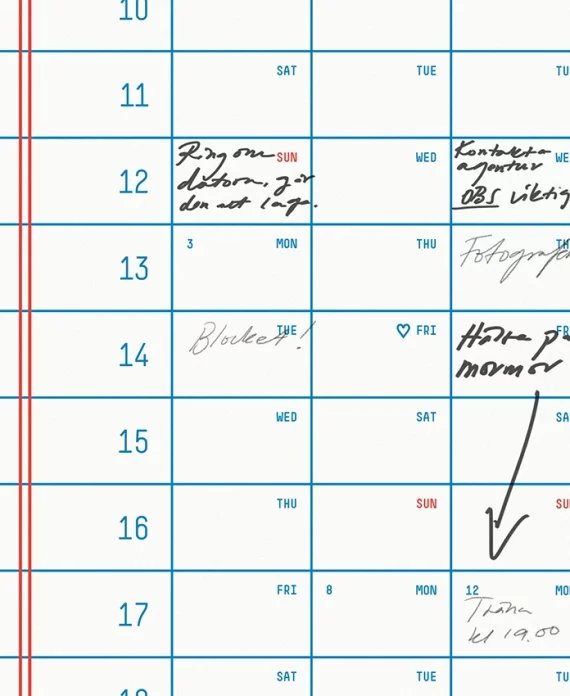 10
11 SAT TUE TU
12 Ring om SUN WED Kontakta WE
datorn, går agentur
den att laga. OBS viktig
13 3 MON THU TH
Fotograf
14 Blocket! TUE ♡ FRI Hälsa på FR
mormor
15 WED SAT SA
16 THU SUN SU
17 FRI 8 MON 12 MO
Träna
kl 19.00
18 SAT TUE TU